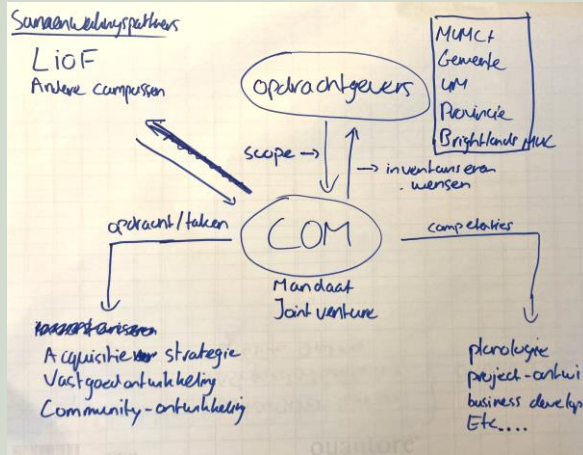 Samenwerkingspartners
LIOF
Andere campussen
opdrachtgevers
MUMC+
Gemeente
UM
Provincie
Brightlands MUC
scope →
→ inventariseren
wensen
opdracht/taken
COM
competenties
Mandaat
Joint venture
Acquisitie strategie
Vastgoedontwikkeling
Community-ontwikkeling
planologie
project-ontwi
business develop
Etc....
quantore